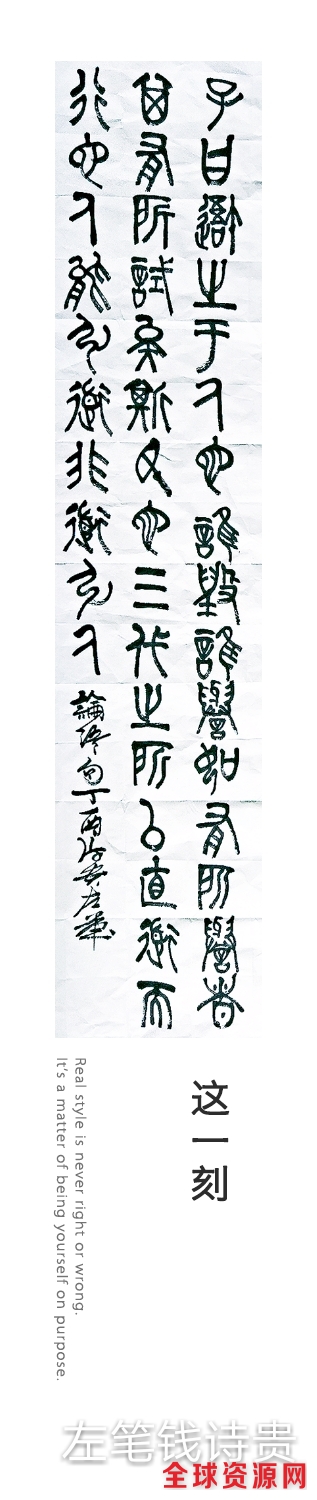 子曰吾之于人也誰毀誰譽如有所譽者
其有所試矣斯民也三代之所以直道而
行也人能弘道非道弘人
論語句丁酉 左筆
这一刻
Real style is never right or wrong.
It's a matter of being yourself on purpose.
左笔钱诗贵
全球资源网